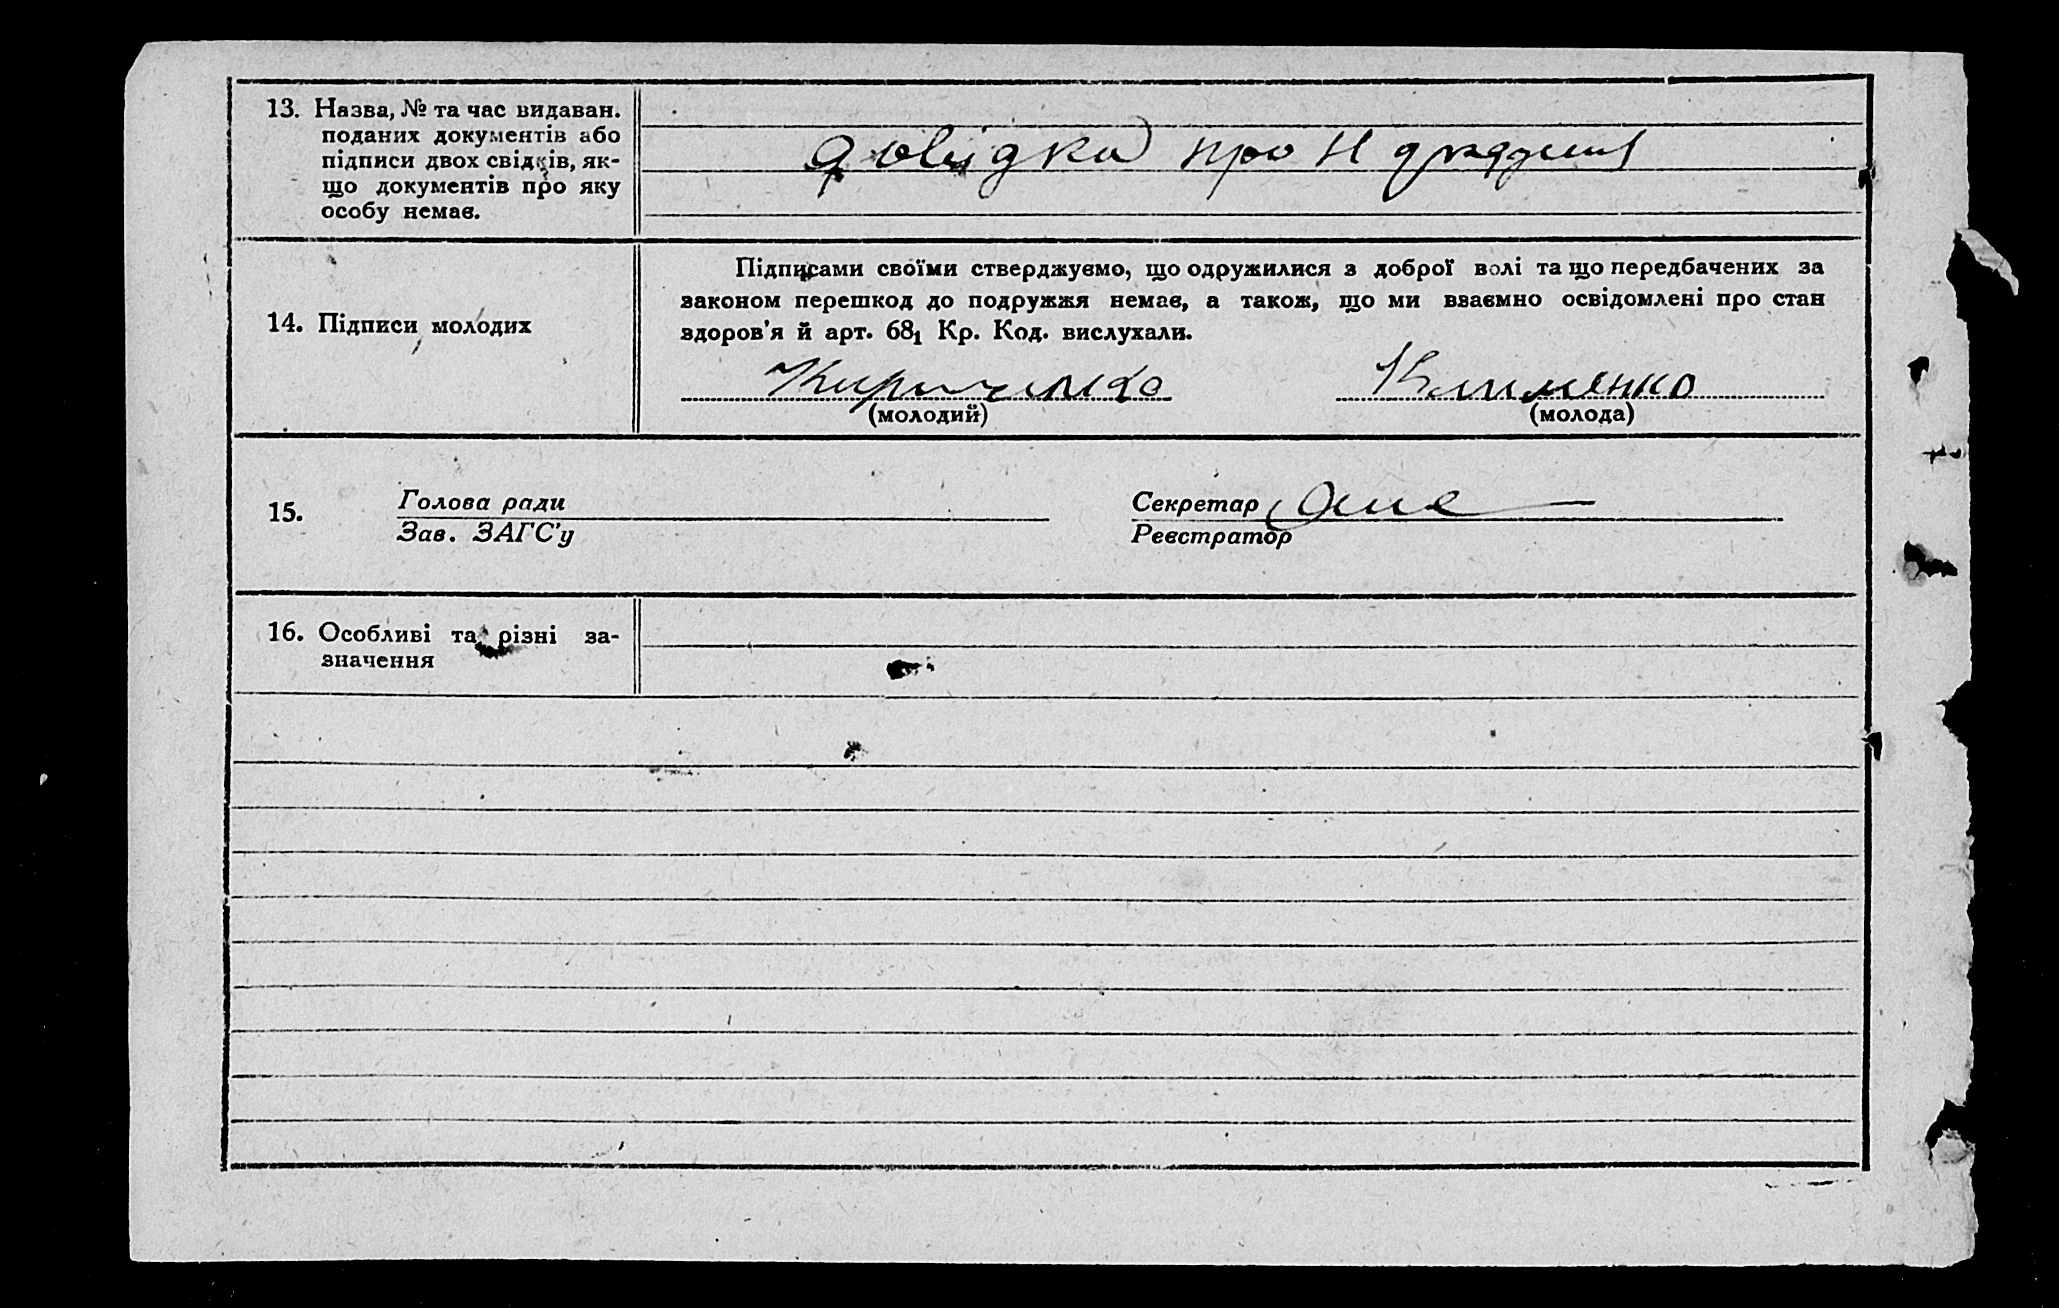 13. Назва, № та час видаван.
поданих документів або
підписи двох свідків, як-
що документів про яку
особу немає.
довідка про
14. Підписи молодих
Підписами своїми стверджуємо, що одружилися з доброї волі та що передбачених за
законом перешкод до подружжя немає, а також, що ми взаємно освідомлені про стан
здоров'я й арт. 68₁ Кр. Код. вислухали.
Кириченко Клименко
(молодий) (молода)
15. Голова ради Секретар
Зав. ЗАГС'у Реєстратор
16. Особливі та різні за-
значення